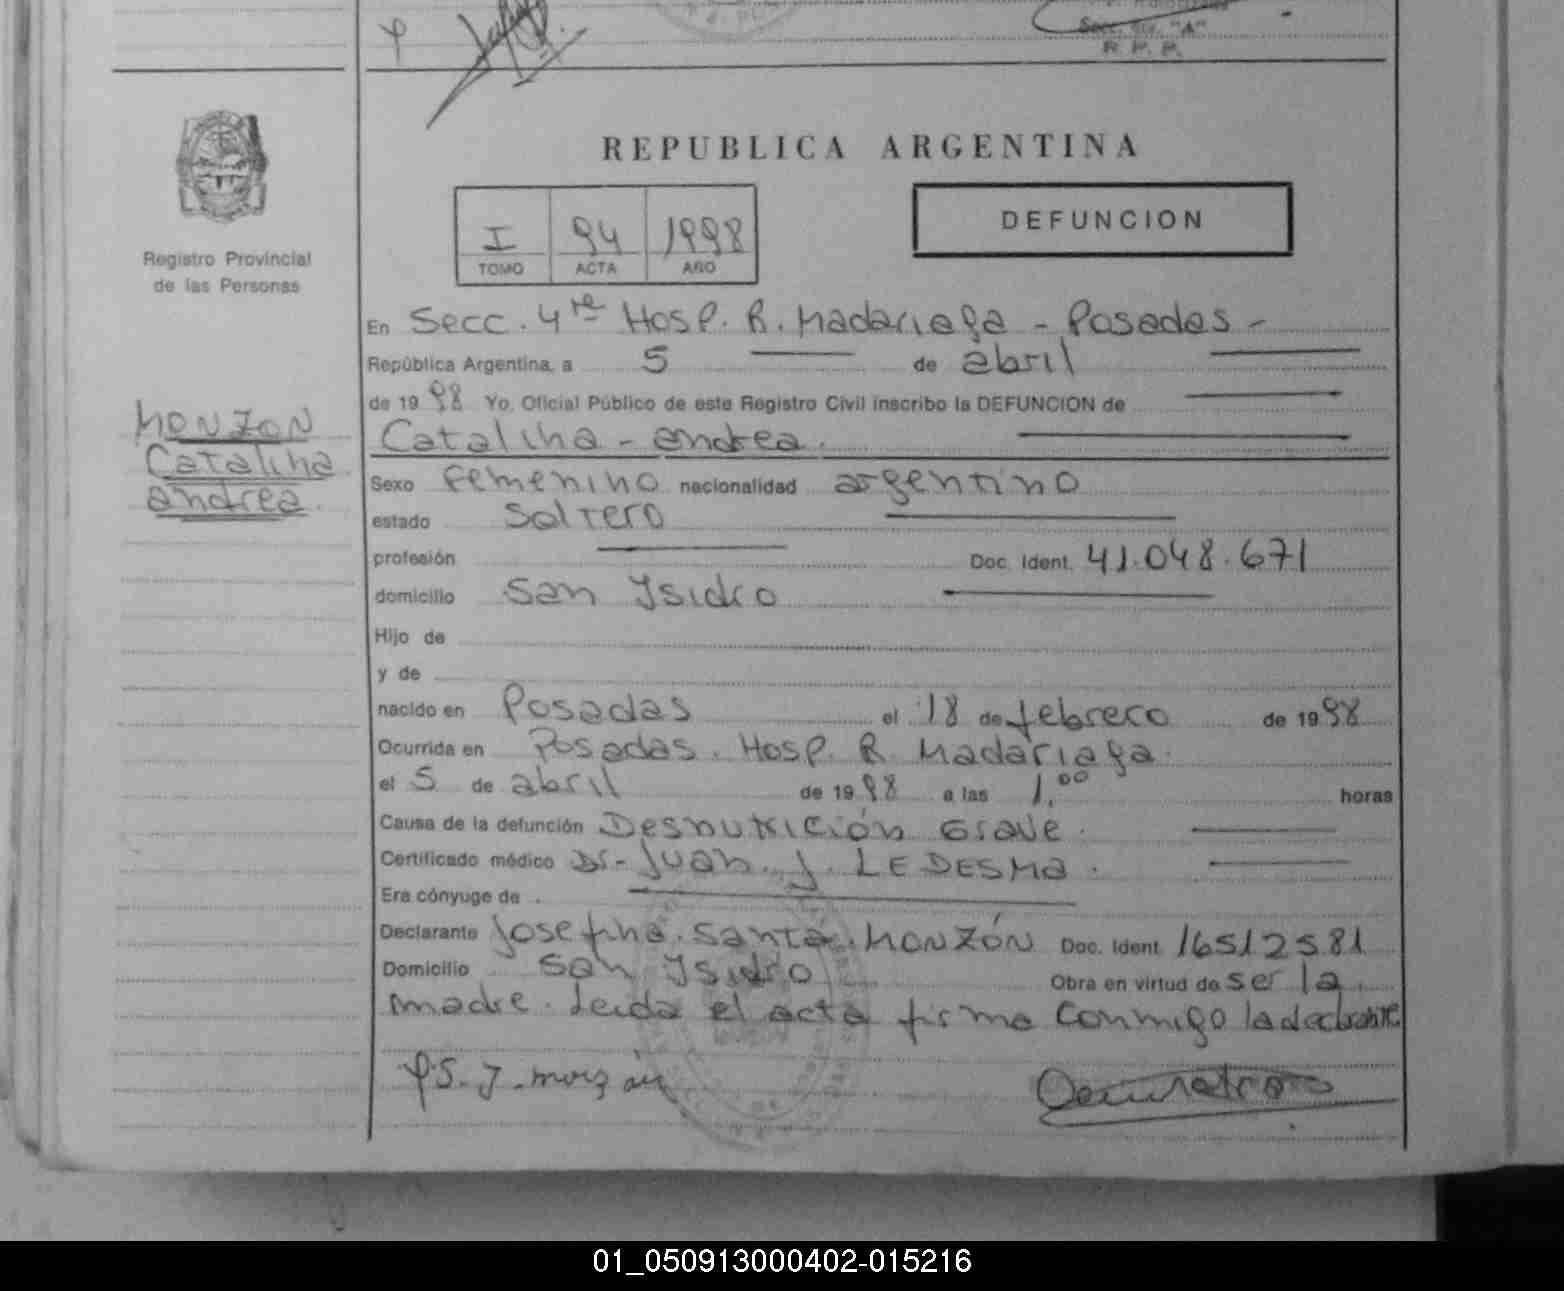 Secc. "A"
R. P. P.
REPUBLICA ARGENTINA
I 94 1998
TOMO ACTA AÑO
DEFUNCION
Registro Provincial
de las Personas
MONZON
Catalina
andrea.
En Secc. 4ta Hosp. R. Madariaga - Posadas -
República Argentina, a 5 de abril
de 1998 Yo, Oficial Público de este Registro Civil inscribo la DEFUNCION de
Catalina - andrea.
Sexo femenino nacionalidad argentino
estado Soltero
profesión Doc. Ident. 41.048.671
domicilio San Ysidro
Hijo de
y de
nacido en Posadas el 18 de febrero de 1998
Ocurrida en Posadas. Hosp. R. Madariaga.
el 5 de abril de 1998 a las 1,00 horas
Causa de la defunción Desnutrición Grave.
Certificado médico Dr. Juan. J. LEDESMA.
Era cónyuge de
Declarante Josefina. Santa. MONZÓN Doc. Ident. 16512581
Domicilio San Ysidro Obra en virtud de ser la
madre. Leida el acta firma conmigo la declarante
S. J. monzón
01_050913000402-015216